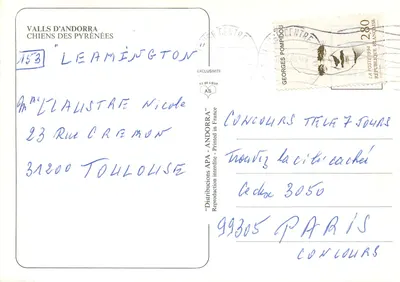 VALLS D'ANDORRA
CHIENS DES PYRÉNÉES
153 "LEAMINGTON"
LIAUSTRE Nicole
23 Rue CREMON
31200 TOULOUSE
"Distributions APA - ANDORRA"
Reproduction interdite - Printed in France
GEORGES POMPIDOU
2,80
LA POSTE 1994
RÉPUBLIQUE FRANÇAISE
CONCOURS TELE 7 JOURS
Trouvez la cité cachée
Cedex 3050
99305 PARIS
CONCOURS